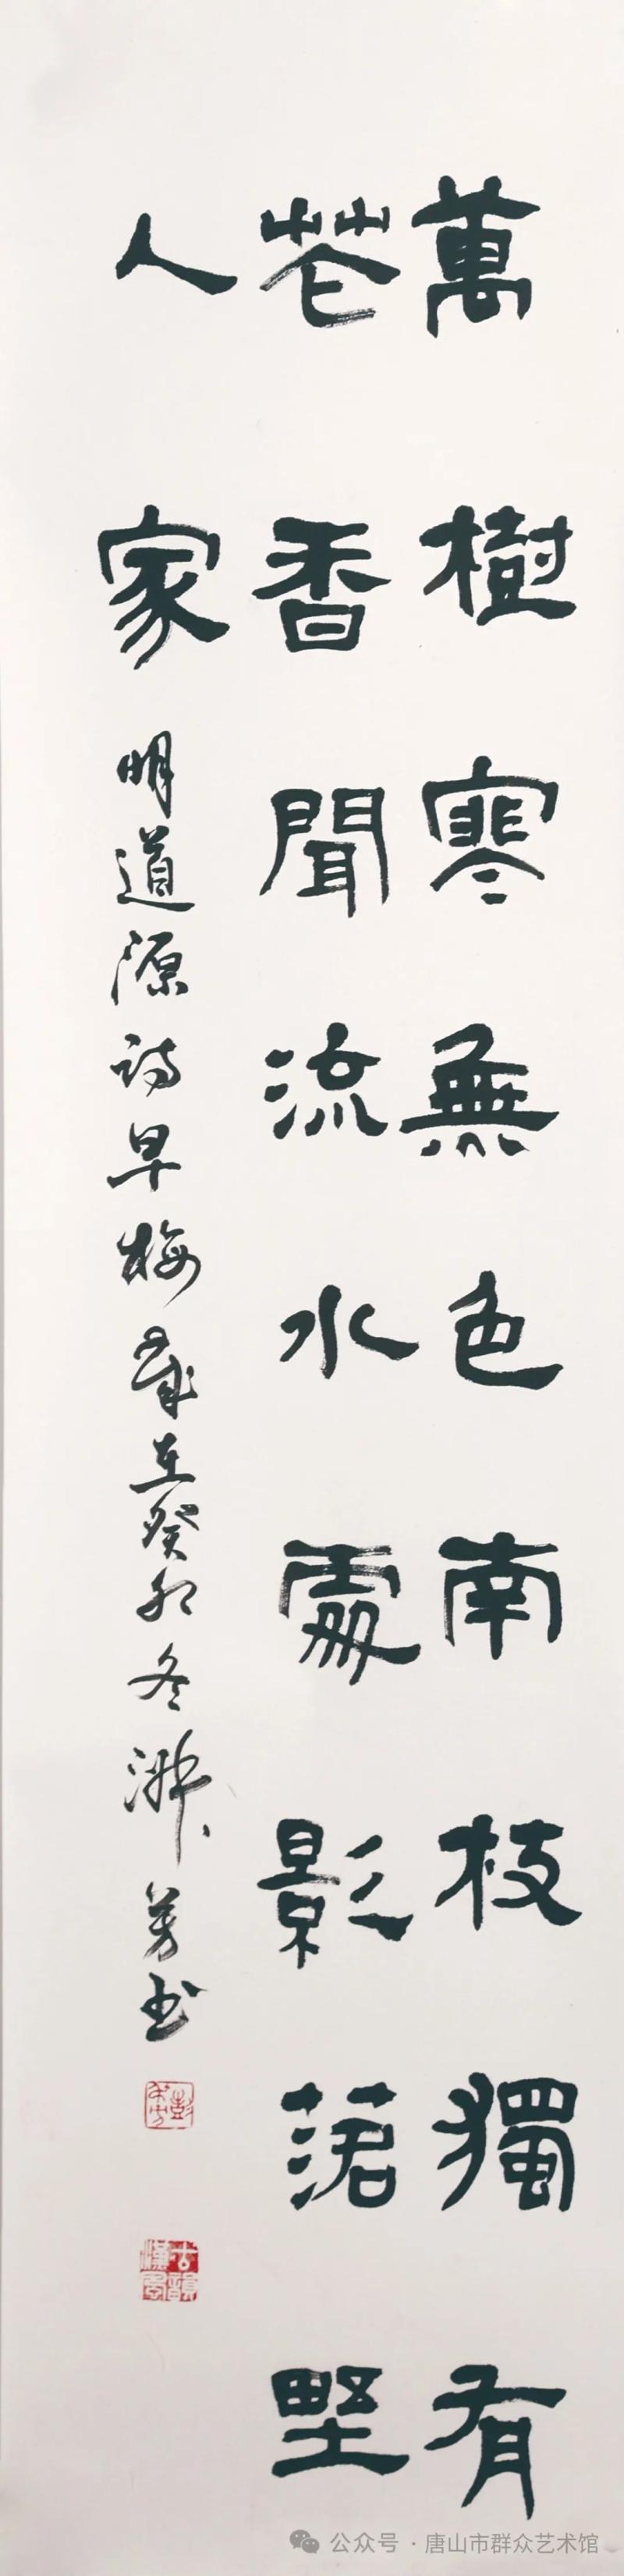 萬樹寒無色南枝獨有
花香聞流水處影落野
人家
明道源詩早梅 歲在癸卯冬 淑芳書
公众号·唐山市群众艺术馆